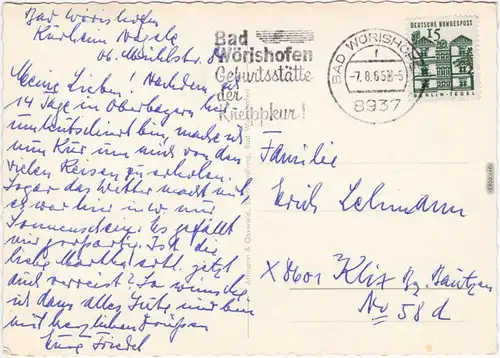 Bad Wörishofen
Kurheim Nagele
Ob. Mühlstr. 8
Meine Lieben! Nachdem ich
14 Tage in Oberbayern her-
umkutschiert bin, mache ich
nun Kur um mich von den
vielen Reisen zu erholen.
Sogar das Wetter macht mit,
es war hier in w. nur
Sonnenschein. Es gefällt
mir großartig. Ist die
liebe Martha evtl. jetzt
auch verreist? So wünsche
ich dann alles Gute und bin
mit herzlichen Grüßen
Eure Friedel
Bad
Wörishofen
Geburtsstätte
der
Kneippkur!
BAD WÖRISHOFEN
f
-7.8.65
8937
DEUTSCHE BUNDESPOST
15
BERLIN-TEGEL
Familie
Erich Lehmann
X 8601 Klix Bz. Bautzen
No 58 d